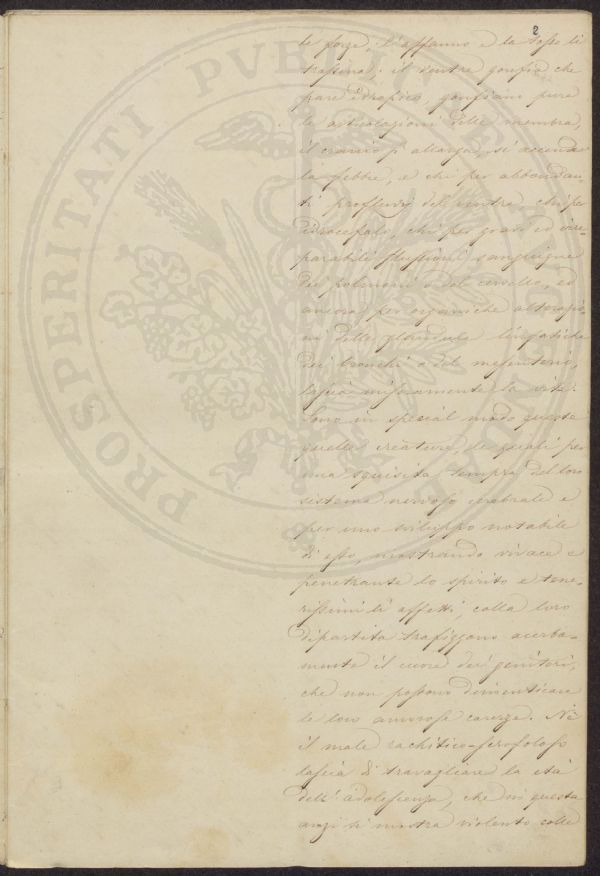 2
le forze, l'affanno e la tosse li
trassina: il ventre gonfio che
pare idropico, gonfiano pure
le articolazioni delle membra,
il cranio s'allarga, si accende
la febbre, e chi per abbondan-
ti profluvj del ventre, chi per
idrocefalo, chi per gravi ed irre-
parabili flussioni sanguigne
dei polmoni o del cervello, ed
ancora per organiche alterazio-
ni delle glandule linfatiche
dei bronchi o del mesenterio,
lascia miseramente la vita.
Sono in special modo queste
quelle creature, le quali per
una squisita tempra del loro
sistema nervoso cerebrale e
per uno sviluppo notabile
di esso, mostrando vivace e
penetrante lo spirito e tene-
rissimi li affetti, colla loro
dipartita trafiggono acerba-
mente il cuore dei genitori,
che non possono dimenticare
le loro amorose carezze. Nè
il male rachitico-scrofoloso
lascia di travagliare la età
dell'adolescenza, che in questa
anzi si mostra violento colle
PROSPERITATI PUBLICAE